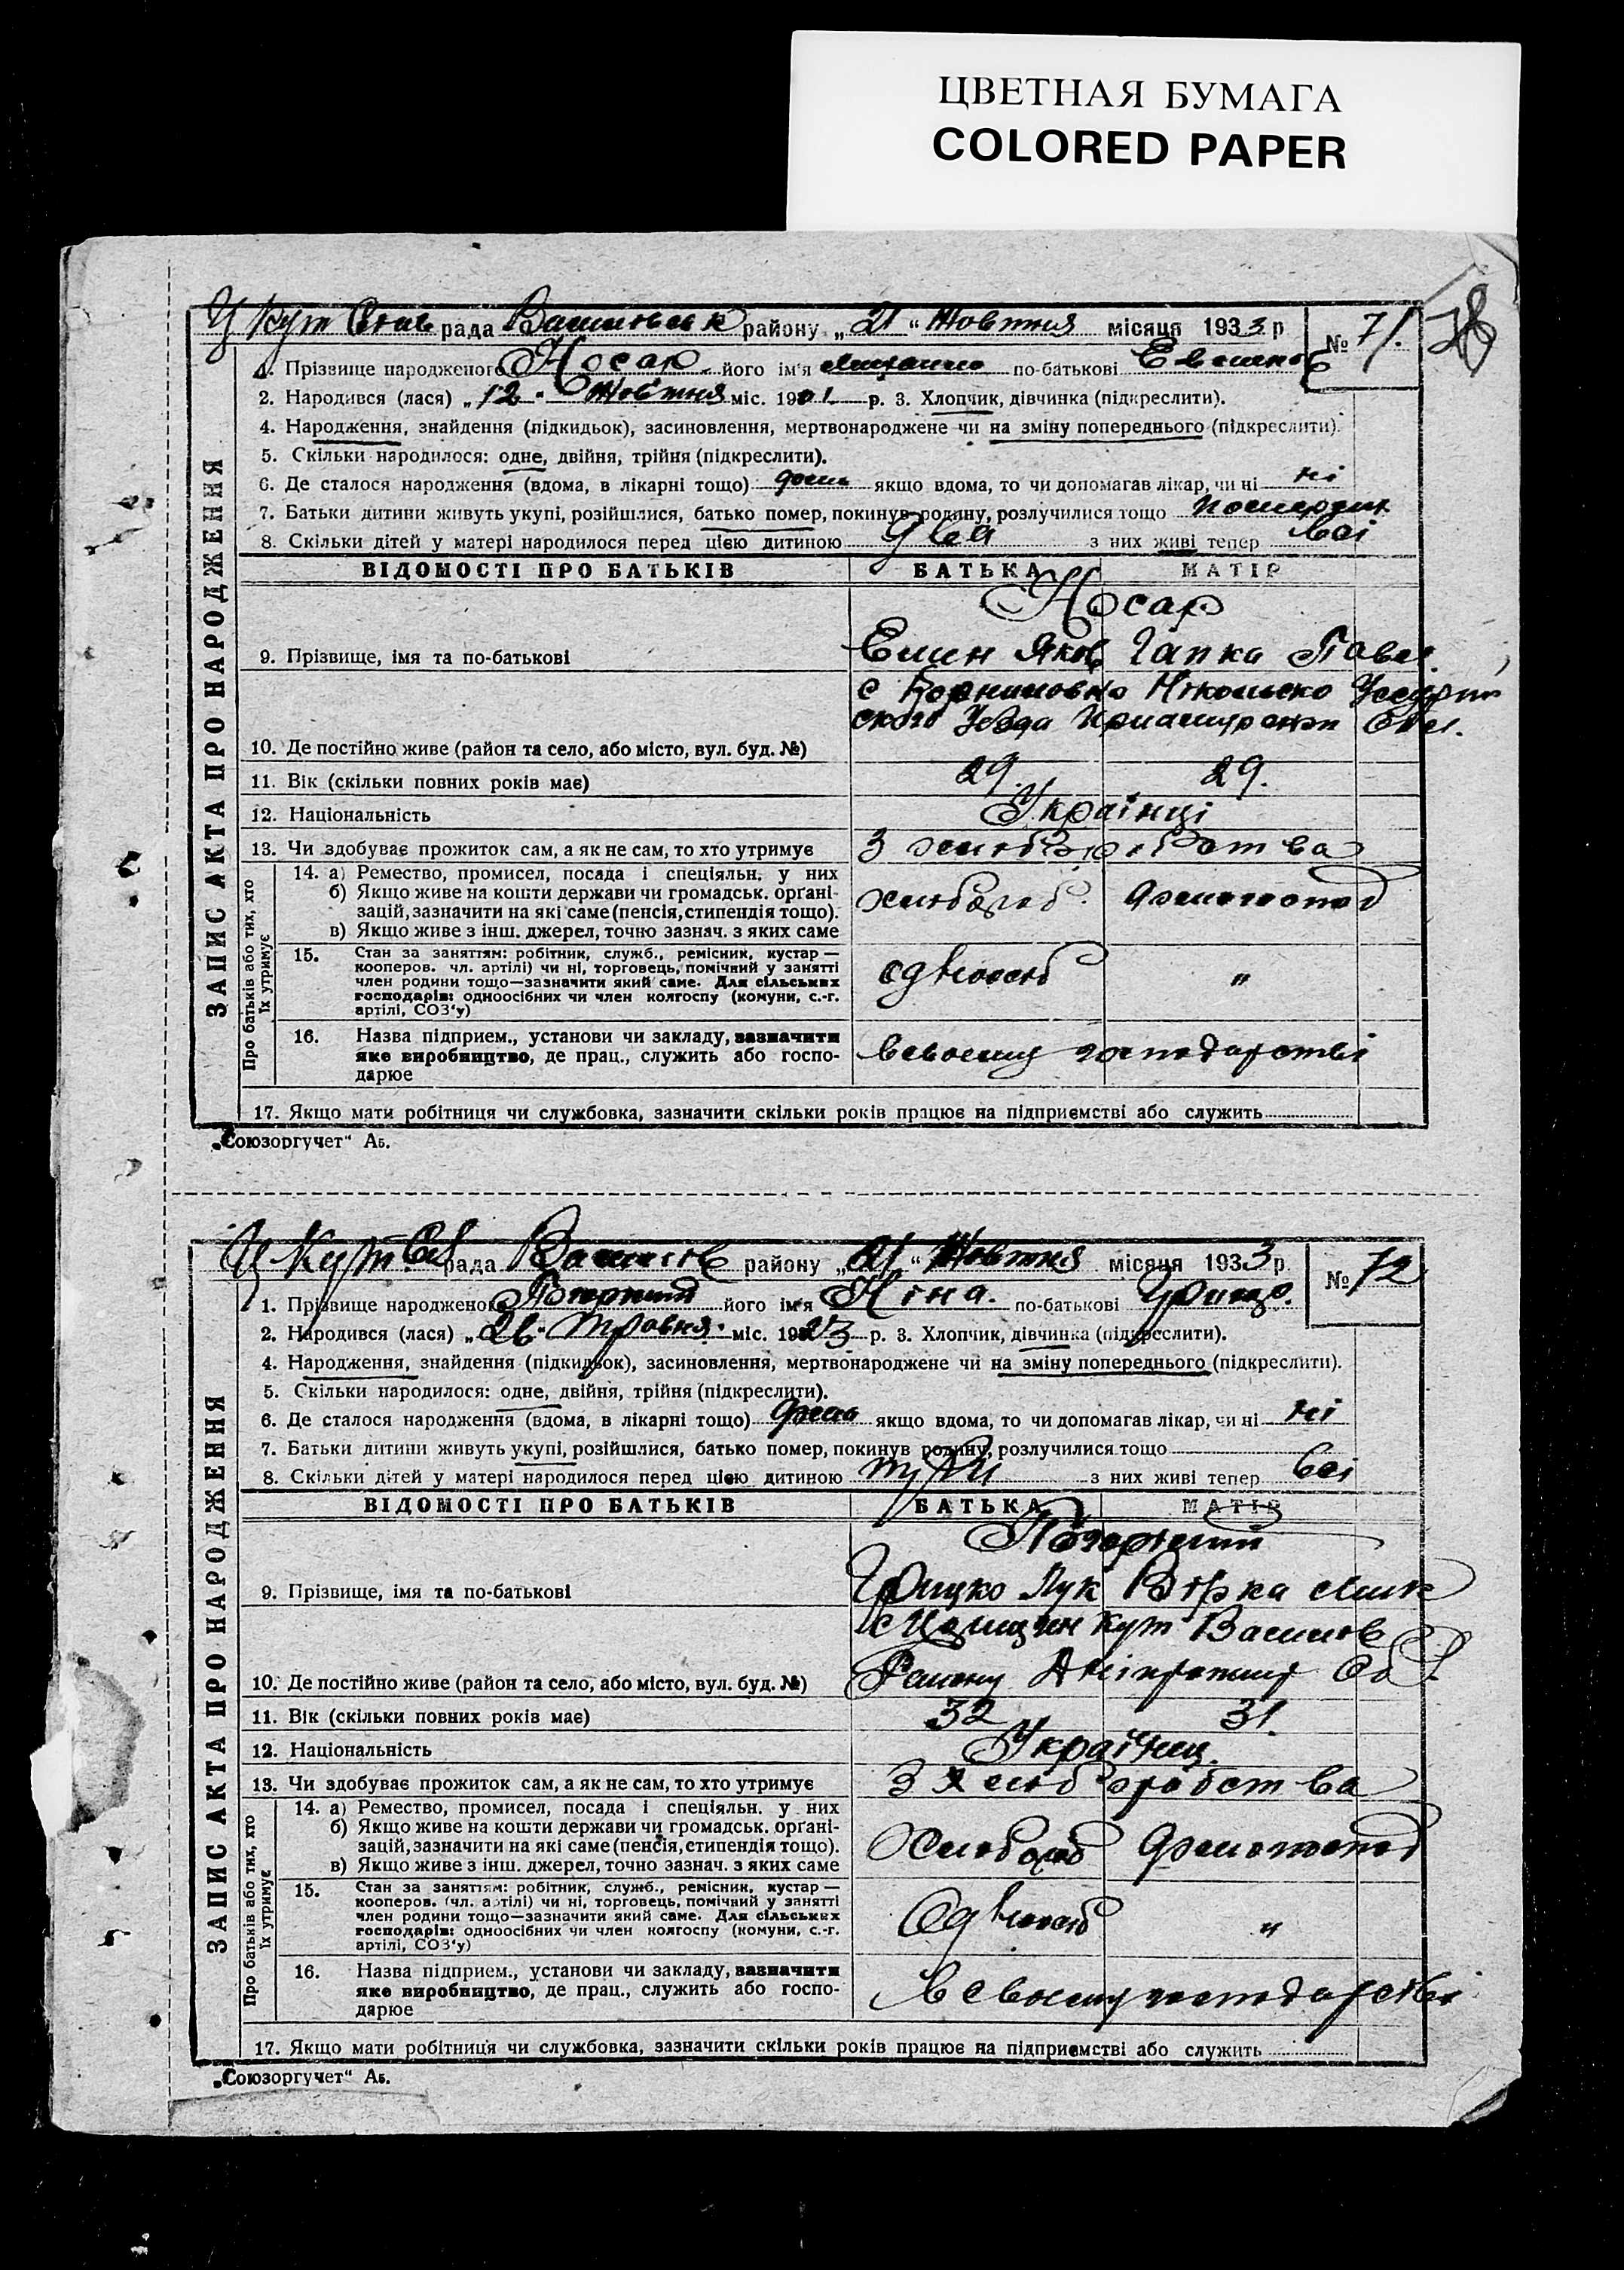 ЦВЕТНАЯ БУМАГА
COLORED PAPER
Ц Кут рада Василівськ району „21“ Жовтня місяця 1933 р № 71.
1. Прізвище народженого Носар його ім'я по-батькові
2. Народився (лася) „12“ Жовтня міс. 1901 р. 3. Хлопчик, дівчинка (підкреслити).
4. Народження, знайдення (підкидьок), засиновлення, мертвонароджене чи на зміну попереднього (підкреслити).
5. Скільки народилося: одне, двійня, трійня (підкреслити).
6. Де сталося народження (вдома, в лікарні тощо) дома якщо вдома, то чи допомагав лікар, чи ні ні
7. Батьки дитини живуть укупі, розійшлися, батько помер, покинув родину, розлучилися тощо
8. Скільки дітей у матері народилося перед цією дитиною два з них живі тепер всі
ВІДОМОСТІ ПРО БАТЬКІВ БАТЬКА МАТІР
Носар
9. Прізвище, імя та по-батькові Гапка Павл.
с Нікольско
ского Уезда Обл.
10. Де постійно живе (район та село, або місто, вул. буд. №)
11. Вік (скільки повних років має) 29. 29.
12. Національність Українці
13. Чи здобуває прожиток сам, а як не сам, то хто утримує З хліборобства
14. а) Ремество, промисел, посада і спеціяльн. у них
б) Якщо живе на кошти держави чи громадськ. орґані-
зацій, зазначити на які саме (пенсія, стипендія тощо). хлібороб. домогоспод
в) Якщо живе з інш. джерел, точно зазнач. з яких саме
15. Стан за заняттям: робітник, служб., ремісник, кустар —
кооперов. чл. артілі) чи ні, торговець, помічний у занятті
член родини тощо—зазначити який саме. Для сільських одноосіб „
господарів: одноосібних чи член колгоспу (комуни, с.-г.
артілі, СОЗ'у)
16. Назва підприєм., установи чи закладу, зазначити
яке виробництво, де прац., служить або госпо- в своему господарстві
дарює
17. Якщо мати робітниця чи службовка, зазначити скільки років працює на підприємстві або служить
ЗАПИС АКТА ПРО НАРОДЖЕННЯ
Про батьків або тих, хто
їх утримує
„Союзоргучет“ Аб.
Ц Кут рада Василів району „21“ Жовтня місяця 1933 р № 72
1. Прізвище народженого його ім'я Ніна. по-батькові Грицьо.
2. Народився (лася) „26“ травня міс. 1923 р. 3. Хлопчик, дівчинка (підкреслити).
4. Народження, знайдення (підкидьок), засиновлення, мертвонароджене чи на зміну попереднього (підкреслити).
5. Скільки народилося: одне, двійня, трійня (підкреслити).
6. Де сталося народження (вдома, в лікарні тощо) дома якщо вдома, то чи допомагав лікар, чи ні ні
7. Батьки дитини живуть укупі, розійшлися, батько помер, покинув родину, розлучилися тощо
8. Скільки дітей у матері народилося перед цією дитиною три з них живі тепер всі
ВІДОМОСТІ ПРО БАТЬКІВ БАТЬКА МАТІР
9. Прізвище, імя та по-батькові Грицко Лук Вірка
с Царицин Кут Василів
10. Де постійно живе (район та село, або місто, вул. буд. №) Району Обл.
11. Вік (скільки повних років має) 32 31.
12. Національність Українц.
13. Чи здобуває прожиток сам, а як не сам, то хто утримує З хліборобства
14. а) Ремество, промисел, посада і спеціяльн. у них
б) Якщо живе на кошти держави чи громадськ. орґані-
зацій, зазначити на які саме (пенсія, стипендія тощо). Хлібороб домогоспод
в) Якщо живе з інш. джерел, точно зазнач. з яких саме
15. Стан за заняттям: робітник, служб., ремісник, кустар —
кооперов. (чл. артілі) чи ні, торговець, помічний у занятті
член родини тощо—зазначити який саме. Для сільських Одноосіб „
господарів: одноосібних чи член колгоспу (комуни, с.-г.
артілі, СОЗ'у)
16. Назва підприєм., установи чи закладу, зазначити
яке виробництво, де прац., служить або госпо- в своему господарстві
дарює
17. Якщо мати робітниця чи службовка, зазначити скільки років працює на підприємстві або служить
ЗАПИС АКТА ПРО НАРОДЖЕННЯ
Про батьків або тих, хто
їх утримує
„Союзоргучет“ Аб.